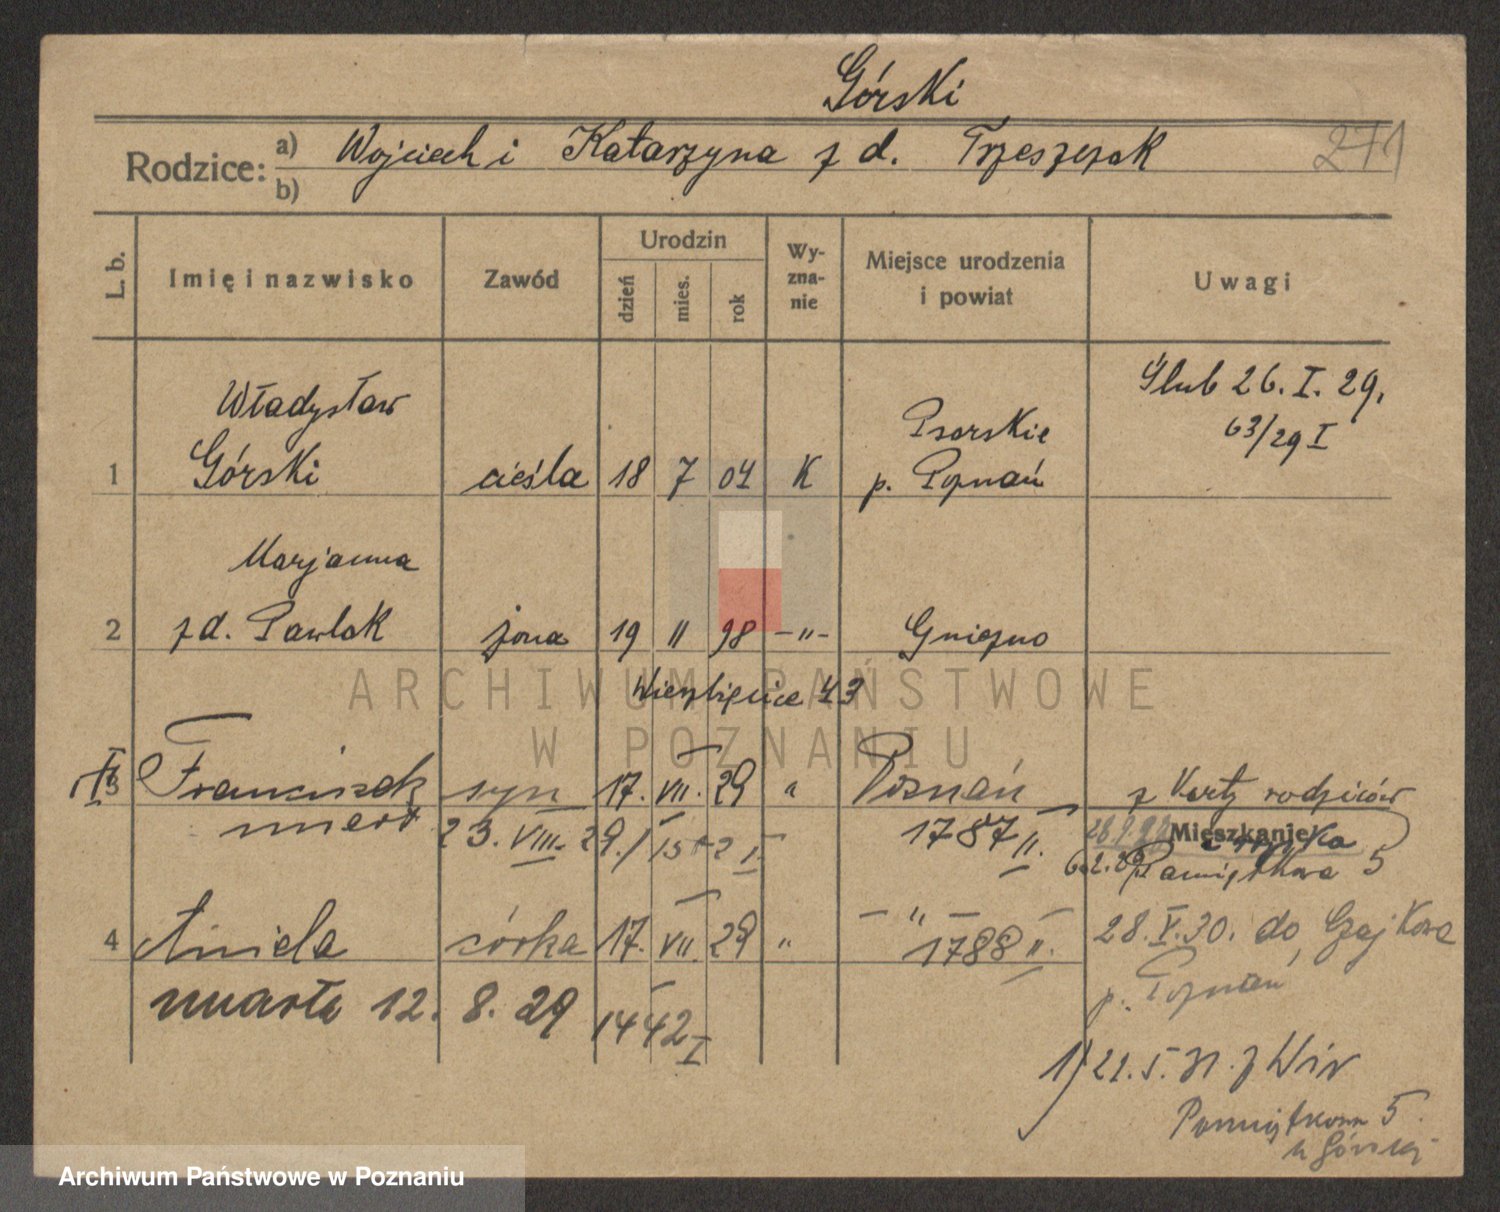 Górski
Rodzice: a) Wojciech i Katarzyna z d. Trzeszczak
b)
271
L. b. Imię i nazwisko Zawód Urodzin dzień mies. rok Wy-zna-nie Miejsce urodzenia i powiat Uwagi
Władysław
Ślub 26. I. 29.
63/29 I
1 Górski cieśla 18 7 04 K p. Poznań
Marjanna
2 z d. Pawlak żona 19 11 98 -"- Gniezno
ARCHIWUM PAŃSTWOWE
W POZNANIU
Wierzbięcice 43
3 Franciszek syn 17. VII. 29 " Poznań z Karty rodziców
umarł 23. VIII. 29. 1787 II.
Mieszkanie:
Pamiątkowa 5
4 Aniela córka 17. VII. 29 " - " - 1788 II.
28. V. 30. do
p. Poznań
umarła 12. 8. 29 1442 I
1) 22. 5. 31. z Wir
Pamiątkowa 5
u Górskiej
Archiwum Państwowe w Poznaniu